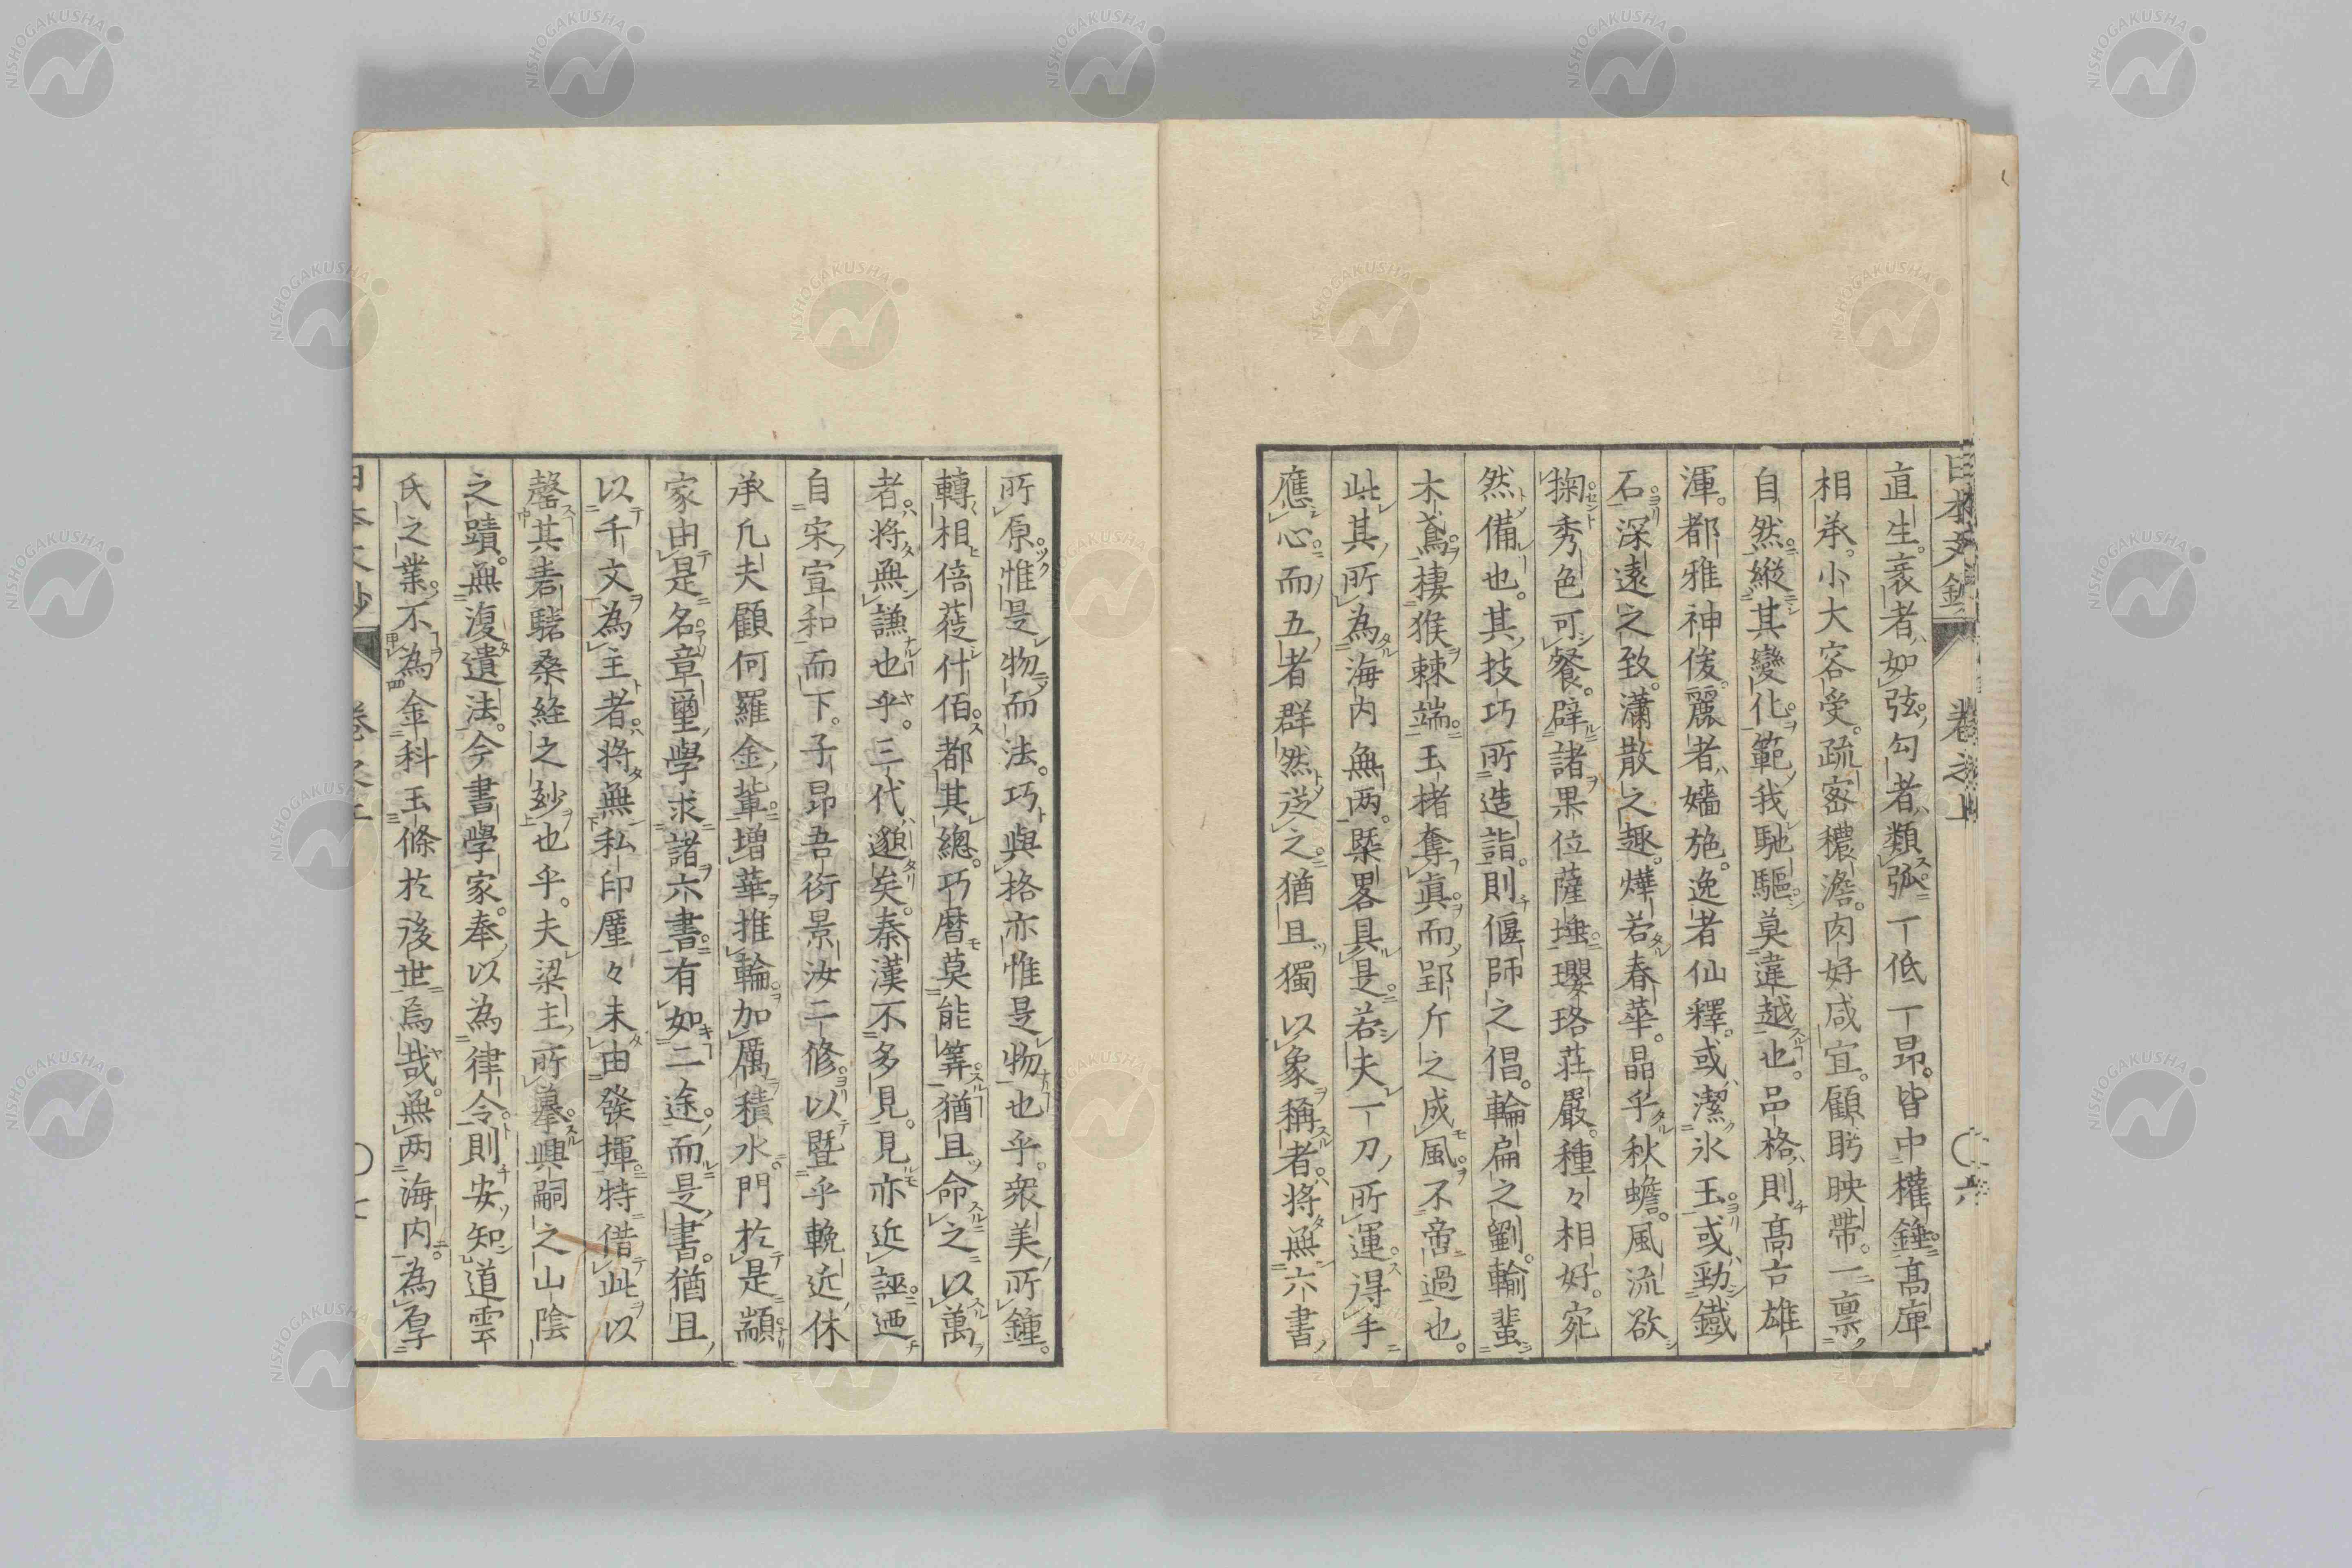 日本文鈔 卷之上 〇六
直生。衺者如弦。勾者類弧。一低一昂。皆中權錘。高庳
相承。小大容受。疏密穠澹。肉好咸宜。顧眄映帶。一稟
自然。縱其變化。範我馳驅。莫違越也。品格則高古雄
渾。都雅神俊。麗者嬙施。逸者仙釋。或潔氷玉。或勁鐵
石。深遠之致。瀟散之趣。燁若春華。晶乎秋蟾。風流欲
掬。秀色可餐。辟諸果位薩埵。瓔珞莊嚴。種々相好。宛
然備也。其技巧所造詣。則偃師之倡。輪扁之劉。輸蜚
木鳶。棲猴棘端。玉楮奪眞。而郢斤之成風。不啻過也。
此其所為海内無两。槩畧具是。若夫一刀所運。得手
應心。而五者群然从之。猶且獨以象稱者。將無六書
所原。惟是物而法。巧與格亦惟是物也乎。衆美所鍾。
轉相倍蓰什佰。都其總。巧曆莫能筭。猶且命之以萬
者。將無謙也乎。三代邈矣。秦漢不多見。見亦近誣。迺
自宋宣和而下。子昂吾衍景汝二修。以暨乎輓近。休
承凡夫顧何羅金軰。増華推輪。加厲積水。門於是顓
家。由是名章璽學。求諸六書。有如二途。而是書。猶且
以千文為主者。將無私印厪々未由發揮。特借此以
罄其砉騞桑經之玅也乎。夫梁主所摹興嗣之山陰
之蹟。無復遺法。今書學家。奉以為律令。則安知道雲
氏之業。不為金科玉條於後世焉哉。無两海内。為厚